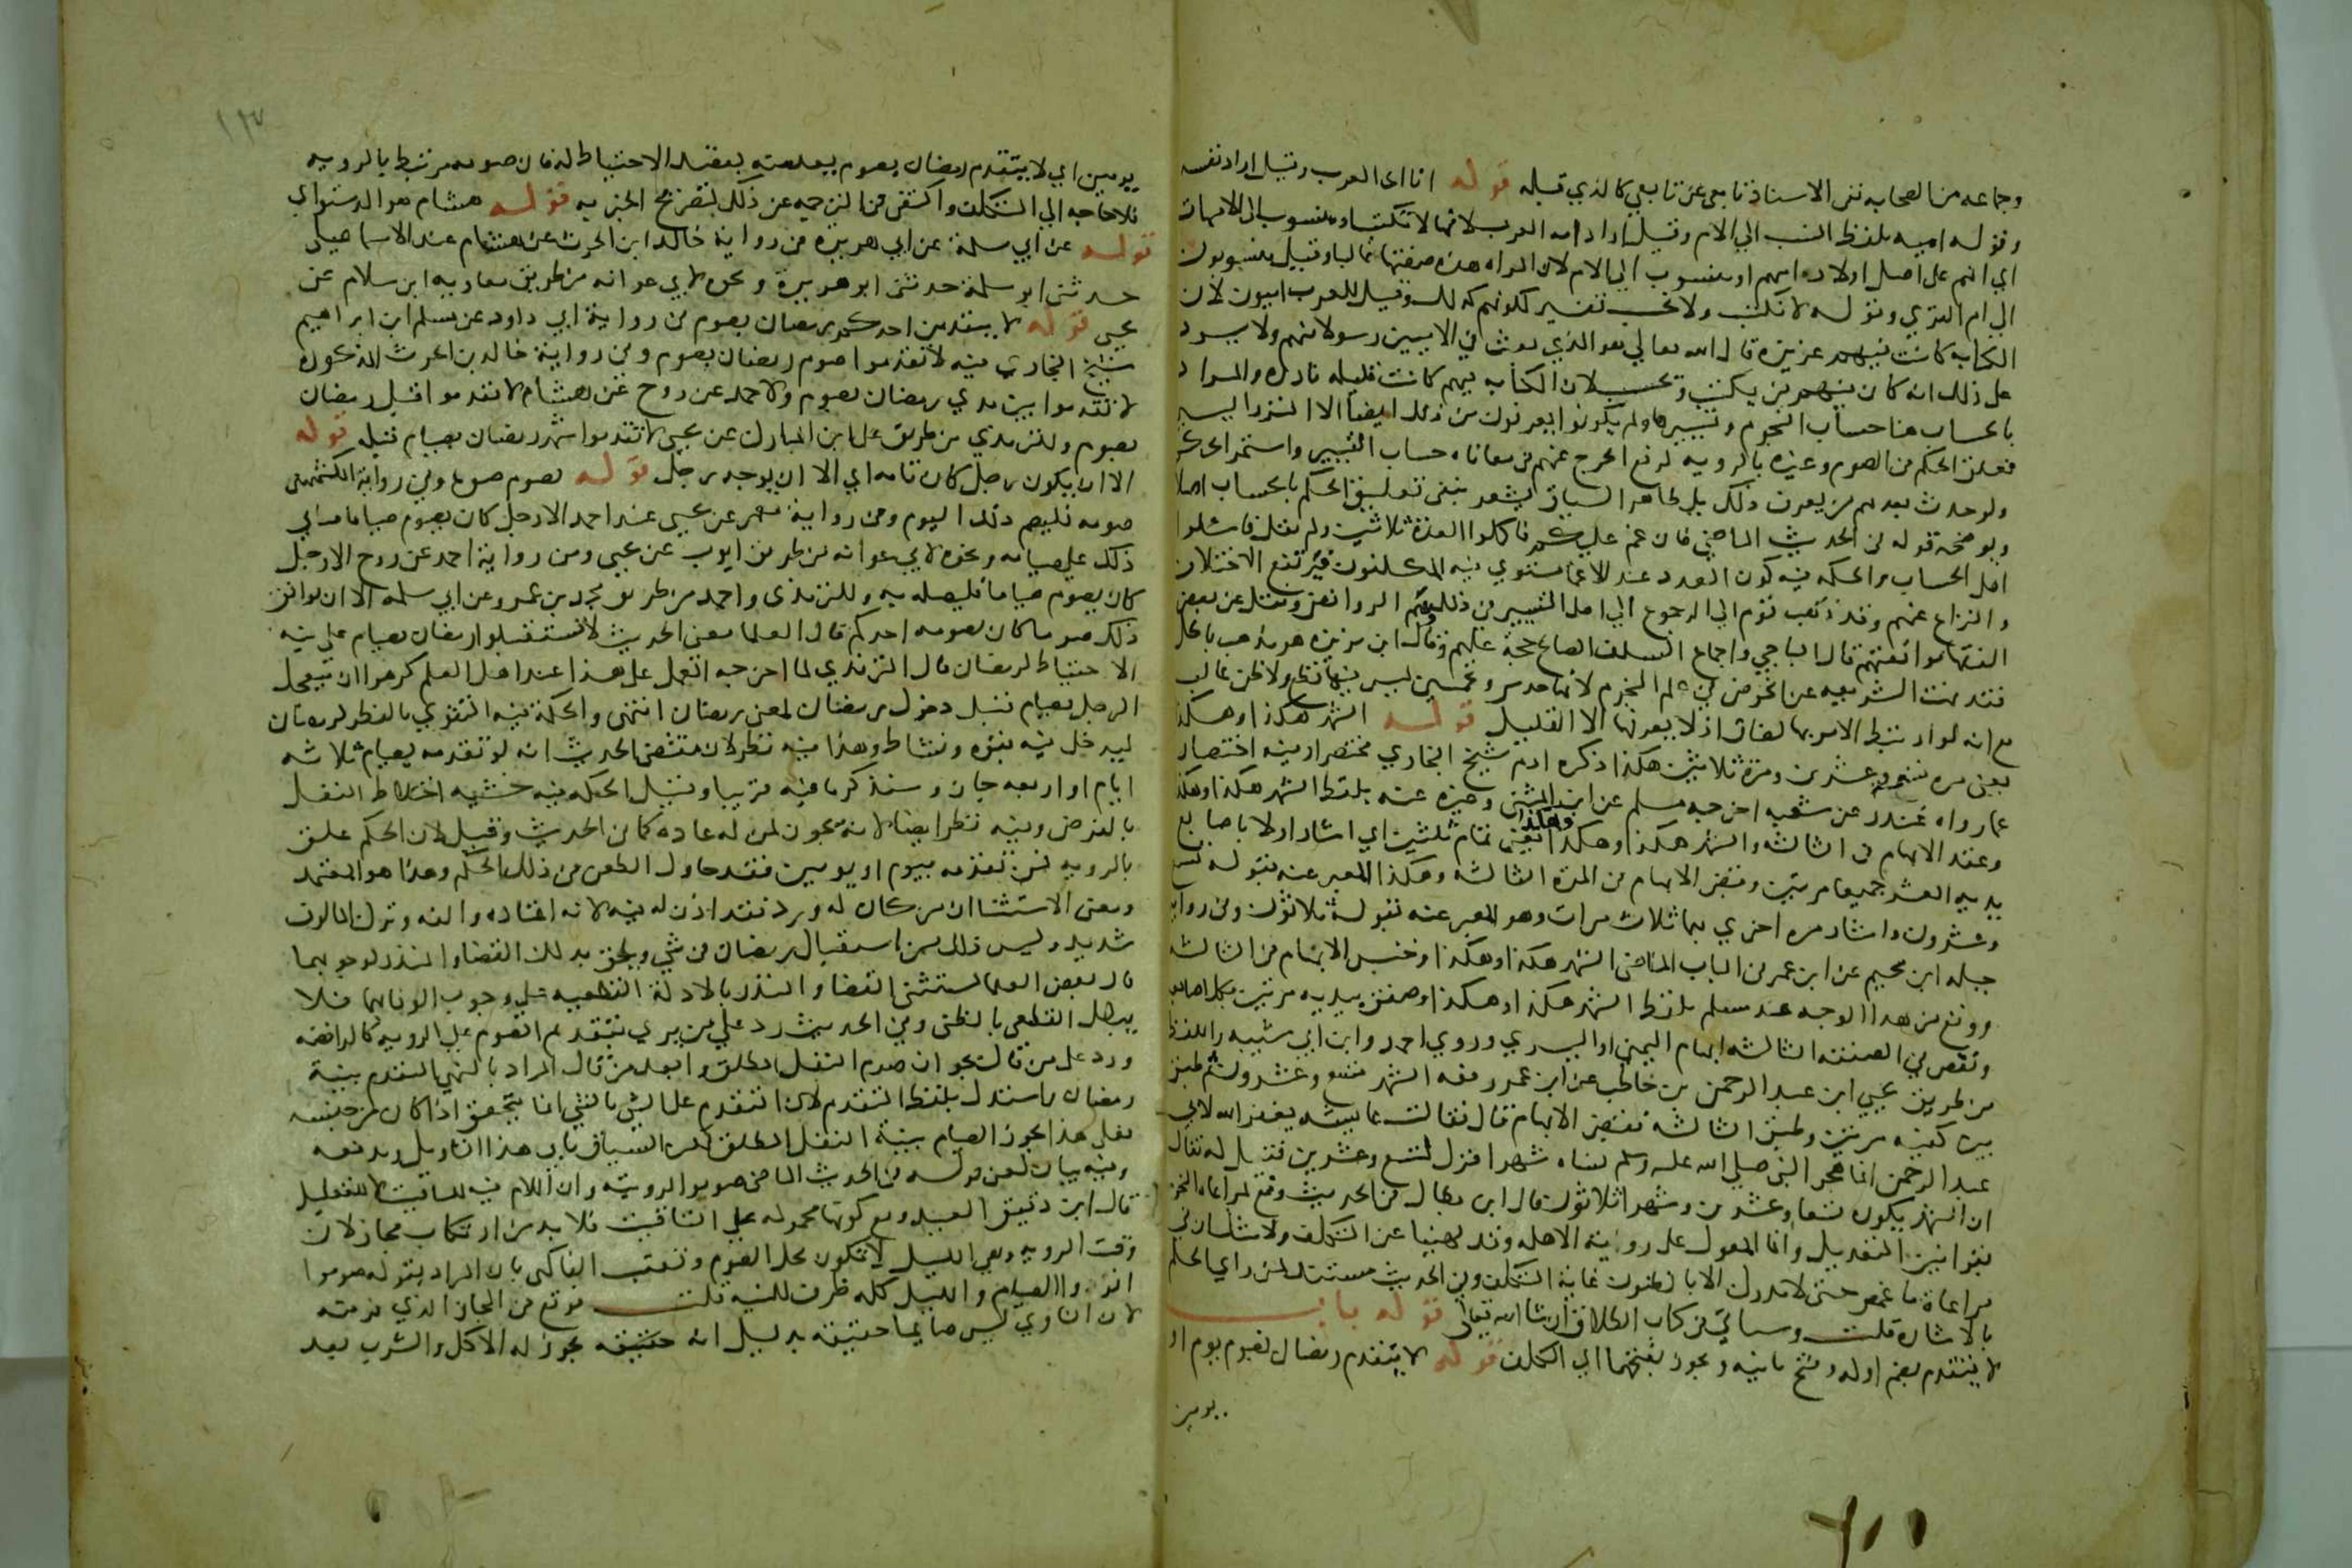 وجماعه من الصحابه ففى الاسناد تابعى عن تابعي كالذي قبله قوله انا اي العرب وقيل اراد نفسه
وقوله اميه بلفظ النسب الي الام وقيل اراد امه العرب لانها لا تكتب او منسوب الى الامهات
اي انهم على اصل اولاده امهم او منسوب الي الام لان المراه هذه صفتها غالبا وقيل منسوبون
الي ام القري وقوله لا نكتب ولا نحسب تفسير لكونهم كذلك وقيل للعرب اميون لان
الكتابه كانت فيهم عزيزه قال الله تعالي هو الذي بعث في الاميين رسولا منهم ولا يرد
على ذلك انه كان فيهم من يكتب ويحسب لان الكتابه فيهم كانت قليله نادره والمراد
بالحساب هنا حساب النجوم وتسييرها ولم يكونوا يعرفون من ذلك ايضا الا النزر اليسير
فعلق الحكم في الصوم وغيره بالرويه لرفع الحرج عنهم في معاناه حساب التسيير واستمر الحكم
ولو حدث بعدهم من يعرف ذلك بل ظاهر السياق يشعر بنفى تعليق الحكم بالحساب اصلا
ويوضحه قوله في الحديث الماضي فان غم عليكم فاكملوا العدة ثلاثين ولم يقل فاسئلوا
اهل الحساب والحكمه فيه كون العدد عند الاغما يستوي فيه المكلفون فيرتفع الاختلاف
والنزاع عنهم وقد ذهب قوم الي الرجوع الي اهل التسيير في ذلك وهم الروافض ونقل عن بعض
الفقها موافقتهم قال الباجي واجماع السلف الصالح حجة عليهم وقال ابن بزيزه هو مذهب باطل
فقد نهت الشريعه عن الخوض في علم النجوم لانها حدس وتخمين ليس فيها قطع ولا ظن غالب
مع انه لو ارتبط الامر بها لضاق اذ لا يعرفها الا القليل قوله الشهر هكذا وهكذا
يعنى مره تسعه وعشرين ومرة ثلاثين هكذا ذكره ادم شيخ البخاري مختصرا وفيه اختصار
عما رواه غندر عن شعبه اخرجه مسلم عن ابن المثنى وغيره عنه بلفظ الشهر هكذا وهكذا
وعقد الابهام في الثالثه والشهر هكذا وهكذا وهكذا يعنى تمام ثلثين اي اشار اولا باصابع
يديه العشر جميعا مرتين وقبض الابهام في المره الثالثه وهكذا المعبر عنه بقوله تسع
وعشرون واشار مره اخري بهما ثلاث مرات وهو المعبر عنه بقوله ثلاثون وفي روايه
جبله ابن سحيم عن ابن عمر في الباب الماضى الشهر هكذا وهكذا وخنس الابهام في الثالثه
ووقع من هذا الوجه عند مسلم بلفظ الشهر هكذا وهكذا وصفق بيديه مرتين بكل اصابعه
ونقص في الصفقه الثالثه ابهام اليمنى او اليسري وروي احمد وابن ابي شيبه واللفظ
من طريق يحيي ابن عبد الرحمن بن حاطب عن ابن عمر رفعه الشهر تسع وعشرون ثم طبق
بين كفيه مرتين وطبق الثالثه فقبض الابهام قال فقالت عايشه يغفر الله لابي
عبد الرحمن انما هجر النبي صلي الله عليه وسلم نساه شهرا فنزل لتسع وعشرين فقيل له فقال
ان الشهر يكون تسعا وعشرين وشهرا ثلاثون قال ابن بطال في الحديث رفع لمراعاه النجوم
بقوانين التعديل وانما المعول على روية الاهله وقد نهينا عن التكلف ولا شك ان في
مراعاة ما غمض حتى لا يدرك الا بالظنون غاية التكلف وفي الحديث مستند لمن راي الحكم
بالاشاره قلت وسياتي في كتاب الطلاق ان شا الله تعالى قوله باب
لا يتقدم بضم اوله وفتح ثانيه ويجوز بفتحهما اي المكلف قوله لا يتقدم رمضان بصوم يوم او
يومين
١٣
يومين اي لا يتقدم رمضان بصوم يوم يعد منه بقصد الاحتياط له فان صومه مرتبط بالرويه
فلا حاجه الي التكلف واكتفى في الترجمه عن ذلك بتصريح الخبر به قوله هشام هو الدستواي
قوله عن ابي سلمة عن ابي هريره في رواية خالد ابن الحرث عن هشام عند الاسماعيلي
حدثنى ابو سلمة حدثنى ابو هريرة ونحوه لابي عوانه من طريق معاويه ابن سلام عن
يحيى قوله لا يتقدمن احدكم رمضان بصوم في رواية ابي داود عن مسلم ابن ابراهيم
شيخ البخاري فيه لا تقدموا صوم رمضان بصوم وفي رواية خالد بن الحرث المذكوره
لا تقدموا بين يدي رمضان بصوم ولاحمد عن روح عن هشام لا تقدموا قبل رمضان
بصوم وللترمذي من طريق على ابن المبارك عن يحيى لا تقدموا شهر رمضان بصيام قبله قوله
الا ان يكون رجل كان تامه اي الا ان يوجد رجل قوله يصوم صومه وفي رواية الكشميهني
صومه فليصم ذلك اليوم وفي رواية معمر عن يحيى عند احمد الا رجل كان يصوم صياما فياتي
ذلك علي صيامه ونحوه لابي عوانه من طريق ايوب عن يحيي وفي رواية احمد عن روح الا رجل
كان يصوم صياما فليصله به وللترمذى واحمد من طريق محمد بن عمرو عن ابي سلمه الا ان يوافق
ذلك صوما كان يصومه احدكم قال العلما معنى الحديث لا تستقبلوا رمضان بصيام على نية
الاحتياط لرمضان قال الترمذي لما اخرجه العمل على هذا عند اهل العلم كرهوا ان يتعجل
الرجل بصيام قبل دخول رمضان لمعنى رمضان انتهى والحكمة فيه التقوي بالفطر لرمضان
ليدخل فيه بقوه ونشاط وهذا فيه نظر لان مقتضى الحديث انه لو تقدمه بصيام ثلاثه
ايام او اربعه جاز وسنذكر ما فيه قريبا وقيل الحكمه فيه خشيه اختلاط النفل
بالفرض وفيه نظر ايضا لانه يجوز لمن له عاده كما في الحديث وقيل لان الحكم علق
بالرويه فمن تقدمه بيوم او يومين فقد حاول الطعن في ذلك الحكم وهذا هو المعتمد
ومعنى الاستثنا ان من كان له ورد فقد اذن له فيه لانه اعتاده والفه وترك المالوف
شديد وليس ذلك من استقبال رمضان في شي ويلحق بذلك القضا والنذر لوجوبهما
قال بعض العلما يستثنى القضا والنذر بالادلة القطعيه علي وجوب الوفا بهما فلا
يبطل القطعى بالظنى وفي الحديث رد علي من يري تقديم الصوم علي الرويه كالرافضه
ورد على من قال بجواز صوم النفل المطلق وابعد من قال المراد بالنهي التقدم بنية
رمضان واستدل بلفظ التقدم لان التقدم على الشى بالشى انما يتحقق اذا كان من جنسه
فعلى هذا يجوز الصيام بنية النفل المطلق لكن السياق يابى هذا التاويل ويدفعه
وفيه بيان لمعنى قوله في الحديث الماضى صوموا لرويته وان اللام فيه للتاقيت لا للتعليل
قال ابن دقيق العيد ومع كونها محموله علي التاقيت فلا بد من ارتكاب مجاز لان
وقت الرويه وهي الليل لا تكون محل الصوم وتعقبه الفاكهي بان المراد بقوله صوموا
انووا الصيام والليل كله ظرف للنيه قلت فوقع في المجاز الذي فر منه
لان الناوي ليس صايما حقيقه بدليل انه حقيقه يجوز له الاكل والشرب بعد